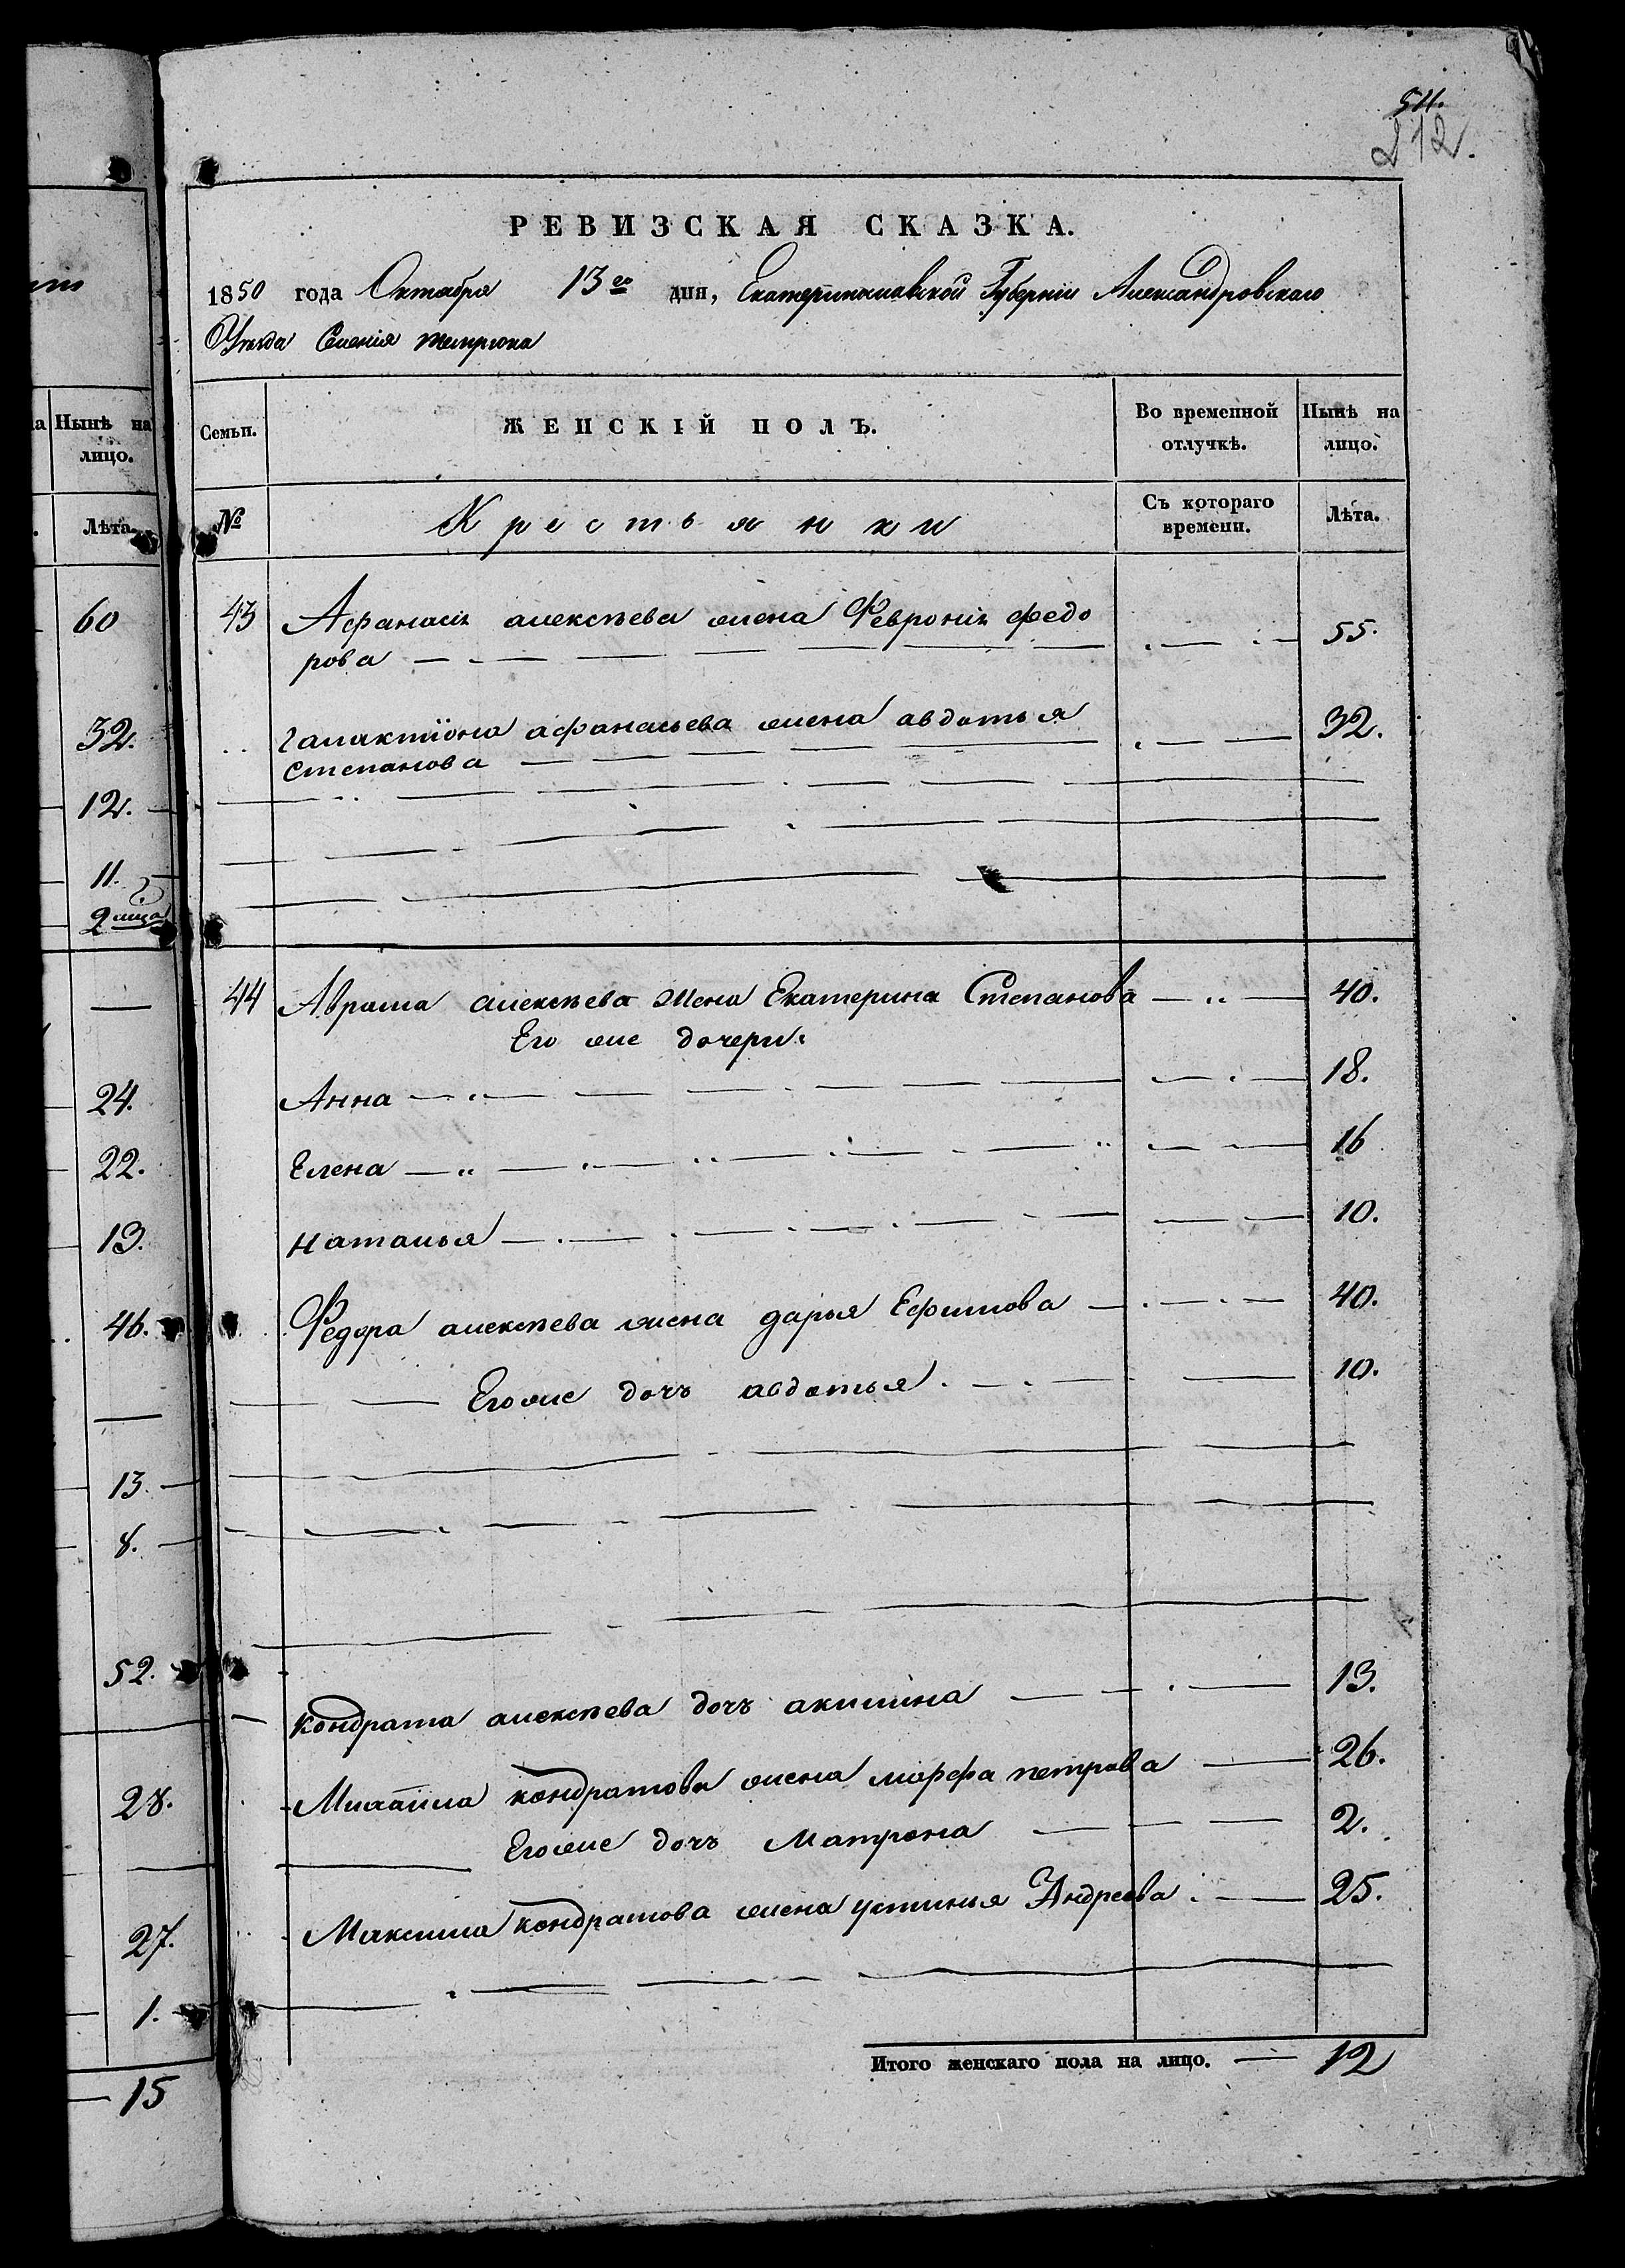 511.
212.
РЕВИЗСКАЯ СКАЗКА.
1850 года Октября 13го дня, Екатеринославской Губерніи Александровскаго
Уѣзда Селенія темрюка
Нынѣ на
лицо.
Лѣта.
60
32.
12.
11.
2
24.
22.
13.
46.
13.
8.
52.
28.
27.
1.
15
Семьи. ЖЕНСКІЙ ПОЛЪ. Во временной отлучкѣ. Нынѣ на лицо.
№ Крестьянки Съ котораго времени. Лѣта.
43 Афанасія алексѣева жена Февронія федо 55.
рова
галактіона афанасьева жена авдотья 32.
степанова
44 Абрама алексѣева жена Екатерина Степанова 40.
Его же дочери:
Анна 18.
Елена 16
наталья 10.
Федора алексѣева жена дарья Ефимова 40.
Егоже дочь авдотья. 10.
кондрата алексѣева дочь акилина 13.
Михайла кондратова жена марфа петрова 26.
Егоже дочь Матрона 2.
Максима кондратова жена устинья Андреева 25.
Итого женскаго пола на лицо. 12